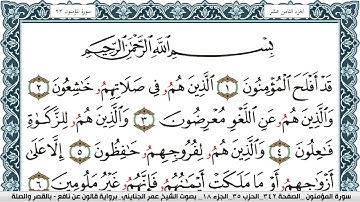 الجزء الثامن عشر سورة المؤمنون ٢٣
بِسْمِ اللَّهِ الرَّحْمَٰنِ الرَّحِيمِ
قَدْ أَفْلَحَ الْمُؤْمِنُونَ ١ الَّذِينَ هُمُۥ فِي صَلَاتِهِمُۥ خَٰشِعُونَ ٢
وَالَّذِينَ هُمُۥ عَنِ اللَّغْوِ مُعْرِضُونَ ٣ وَالَّذِينَ هُمُۥ لِلزَّكَوٰةِ
فَٰعِلُونَ ٤ وَالَّذِينَ هُمُۥ لِفُرُوجِهِمُۥ حَٰفِظُونَ ٥ إِلَّا عَلَىٰ
أَزْوَٰجِهِمُۥ أَوْ مَا مَلَكَتْ أَيْمَٰنُهُمُۥ فَإِنَّهُمُۥ غَيْرُ مَلُومِينَ ٦
سورة المؤمنون - الصفحة ٣٤٢ - الحزب ٣٥ - الجزء ١٨ - بصوت الشيخ عمر الجنايني - برواية قالون عن نافع - بالقصر والصلة